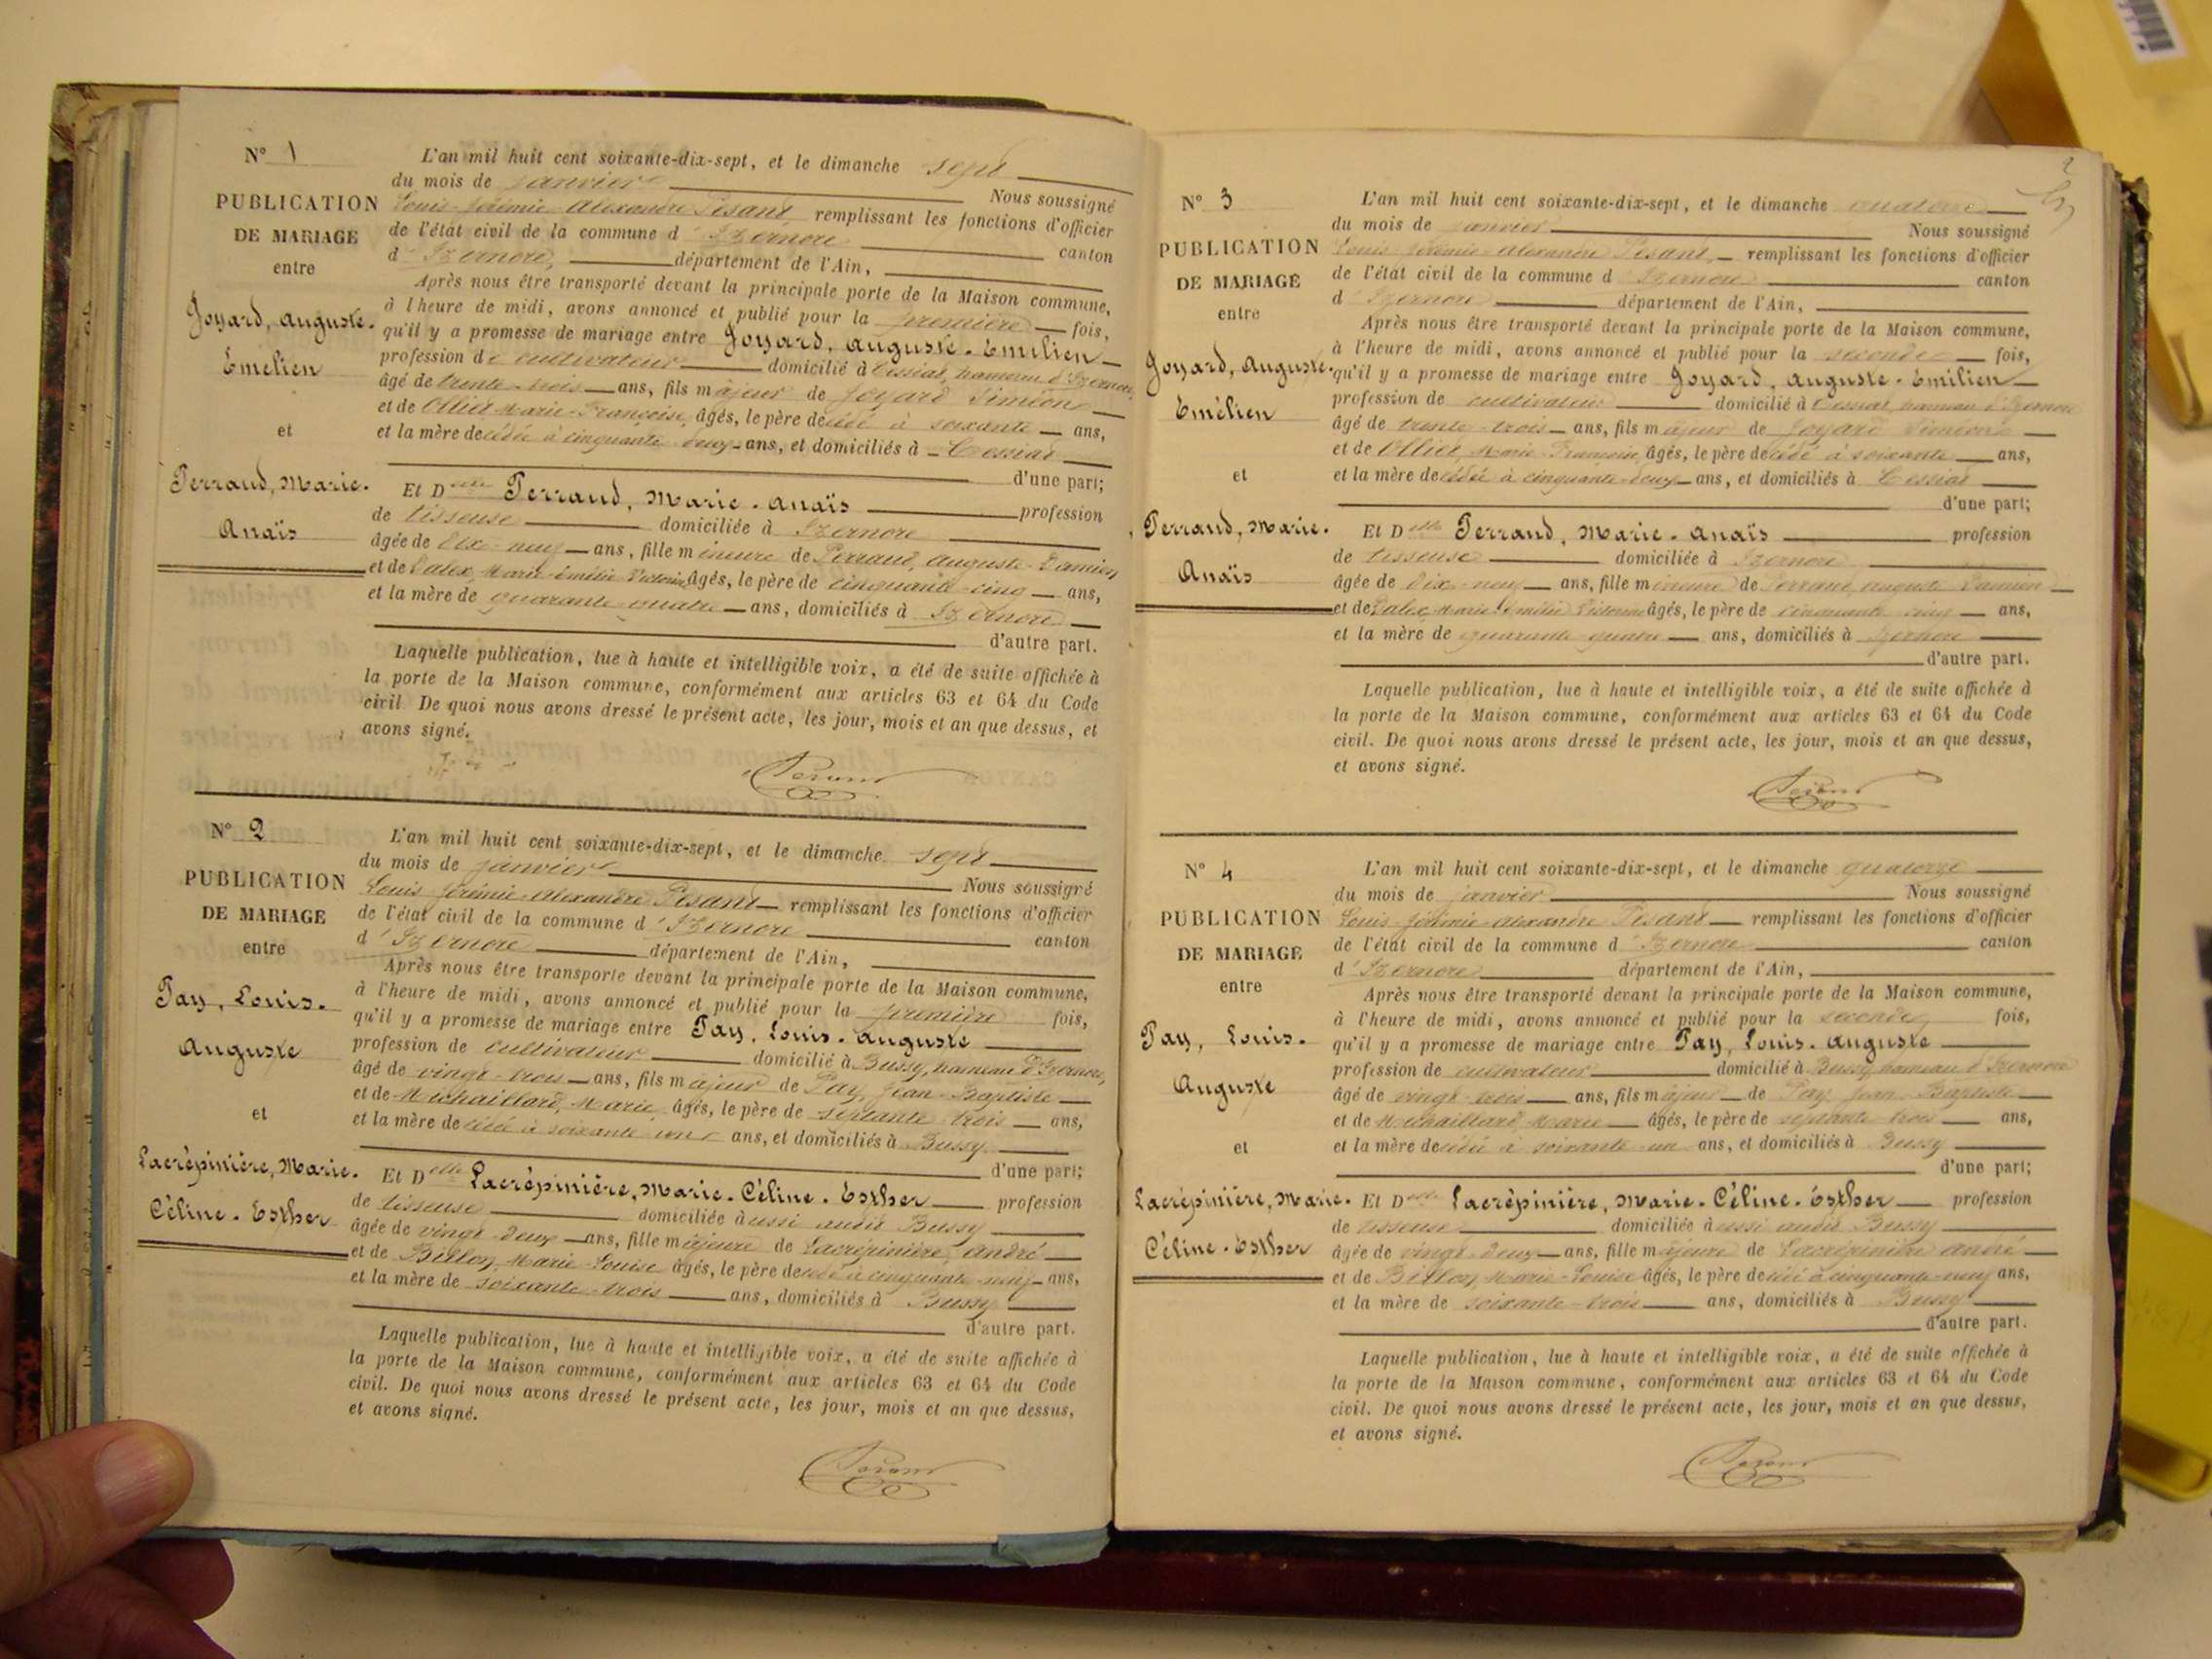 N° 1
PUBLICATION
DE MARIAGE
entre
Joyard, Auguste.
Emélien
et
Perraud, Marie.
Anaïs
L'an mil huit cent soixante-dix-sept, et le dimanche sept
du mois de janvier Nous soussigné
Louis Jérémie Alexandre Pesant remplissant les fonctions d'officier
de l'état civil de la commune d'Izernore canton
d'Izernore, département de l'Ain,
Après nous être transporté devant la principale porte de la Maison commune,
à l'heure de midi, avons annoncé et publié pour la première fois,
qu'il y a promesse de mariage entre Joyard, Auguste. Emilien
profession de cultivateur domicilié à Cessiat, hameau d'Izernore,
âgé de trente-trois ans, fils majeur de Joyard Siméon
et de Ollier Marie-Françoise, âgés, le père décédé à soixante ans,
et la mère décédée à cinquante-deux ans, et domiciliés à Cessiat
d'une part;
Et Delle Perraud, Marie. Anaïs profession
de tisseuse domiciliée à Izernore
âgée de dix-neuf ans, fille mineure de Perraud, Auguste-Damien
et de Marie-Emélie Victorine âgés, le père de cinquante-cinq ans,
et la mère de quarante-quatre ans, domiciliés à Izernore
d'autre part.
Laquelle publication, lue à haute et intelligible voix, a été de suite affichée à
la porte de la Maison commune, conformément aux articles 63 et 64 du Code
civil. De quoi nous avons dressé le présent acte, les jour, mois et an que dessus, et
avons signé.
Pesant
N° 2
PUBLICATION
DE MARIAGE
entre
Pay, Louis.
Auguste
et
Lacrépinière, Marie.
Céline. Esther
L'an mil huit cent soixante-dix-sept, et le dimanche sept
du mois de janvier Nous soussigné
Louis Jérémie-Alexandre Pesant remplissant les fonctions d'officier
de l'état civil de la commune d'Izernore canton
d'Izernore département de l'Ain,
Après nous être transporté devant la principale porte de la Maison commune,
à l'heure de midi, avons annoncé et publié pour la première fois,
qu'il y a promesse de mariage entre Pay, Louis. Auguste
profession de cultivateur domicilié à Bussy, hameau d'Izernore,
âgé de vingt-trois ans, fils majeur de Pay, Jean-Baptiste
et de Michaillard, Marie âgés, le père de septante-trois ans,
et la mère décédée à soixante-un ans, et domiciliés à Bussy
d'une part;
Et Delle Lacrépinière, Marie. Céline. Esther profession
de tisseuse domiciliée aussi audit Bussy
âgée de vingt-deux ans, fille majeure de Lacrépinière, André
et de Billon, Marie-Louise âgés, le père décédé à cinquante-neuf ans,
et la mère de soixante-trois ans, domiciliés à Bussy
d'autre part.
Laquelle publication, lue à haute et intelligible voix, a été de suite affichée à
la porte de la Maison commune, conformément aux articles 63 et 64 du Code
civil. De quoi nous avons dressé le présent acte, les jour, mois et an que dessus,
et avons signé.
Pesant
2
N° 3
PUBLICATION
DE MARIAGE
entre
Joyard, Auguste.
Emélien
et
Perraud, Marie.
Anaïs
L'an mil huit cent soixante-dix-sept, et le dimanche quatorze
du mois de janvier Nous soussigné
Louis-Jérémie-Alexandre Pesant, remplissant les fonctions d'officier
de l'état civil de la commune d'Izernore canton
d'Izernore département de l'Ain,
Après nous être transporté devant la principale porte de la Maison commune,
à l'heure de midi, avons annoncé et publié pour la seconde fois,
qu'il y a promesse de mariage entre Joyard, Auguste. Emilien
profession de cultivateur domicilié à Cessiat, hameau d'Izernore
âgé de trente-trois ans, fils majeur de Joyard Siméon
et de Ollier, Marie-Françoise, âgés, le père décédé à soixante ans,
et la mère décédée à cinquante-deux ans, et domiciliés à Cessiat
d'une part;
Et Delle Perraud, Marie. Anaïs profession
de tisseuse domiciliée à Izernore
âgée de dix-neuf ans, fille mineure de Perraud, Auguste Damien
et de Marie-Emélie Victorine âgés, le père de cinquante-cinq ans,
et la mère de quarante-quatre ans, domiciliés à Izernore
d'autre part.
Laquelle publication, lue à haute et intelligible voix, a été de suite affichée à
la porte de la Maison commune, conformément aux articles 63 et 64 du Code
civil. De quoi nous avons dressé le présent acte, les jour, mois et an que dessus,
et avons signé.
Pesant
N° 4
PUBLICATION
DE MARIAGE
entre
Pay, Louis.
Auguste
et
Lacrépinière, Marie.
Céline. Esther
L'an mil huit cent soixante-dix-sept, et le dimanche quatorze
du mois de janvier Nous soussigné
Louis-Jérémie-Alexandre Pesant remplissant les fonctions d'officier
de l'état civil de la commune d'Izernore canton
d'Izernore département de l'Ain,
Après nous être transporté devant la principale porte de la Maison commune,
à l'heure de midi, avons annoncé et publié pour la seconde fois,
qu'il y a promesse de mariage entre Pay, Louis. Auguste
profession de cultivateur domicilié à Bussy hameau d'Izernore
âgé de vingt-trois ans, fils majeur de Pay Jean-Baptiste
et de Michaillard, Marie âgés, le père de septante-trois ans,
et la mère décédée à soixante-un ans, et domiciliés à Bussy
d'une part;
Et Delle Lacrépinière, Marie. Céline. Esther profession
de tisseuse domiciliée aussi audit Bussy
âgée de vingt-deux ans, fille majeure de Lacrépinière André
et de Billon, Marie-Louise âgés, le père décédé à cinquante-neuf ans,
et la mère de soixante-trois ans, domiciliés à Bussy
d'autre part.
Laquelle publication, lue à haute et intelligible voix, a été de suite affichée à
la porte de la Maison commune, conformément aux articles 63 et 64 du Code
civil. De quoi nous avons dressé le présent acte, les jour, mois et an que dessus,
et avons signé.
Pesant